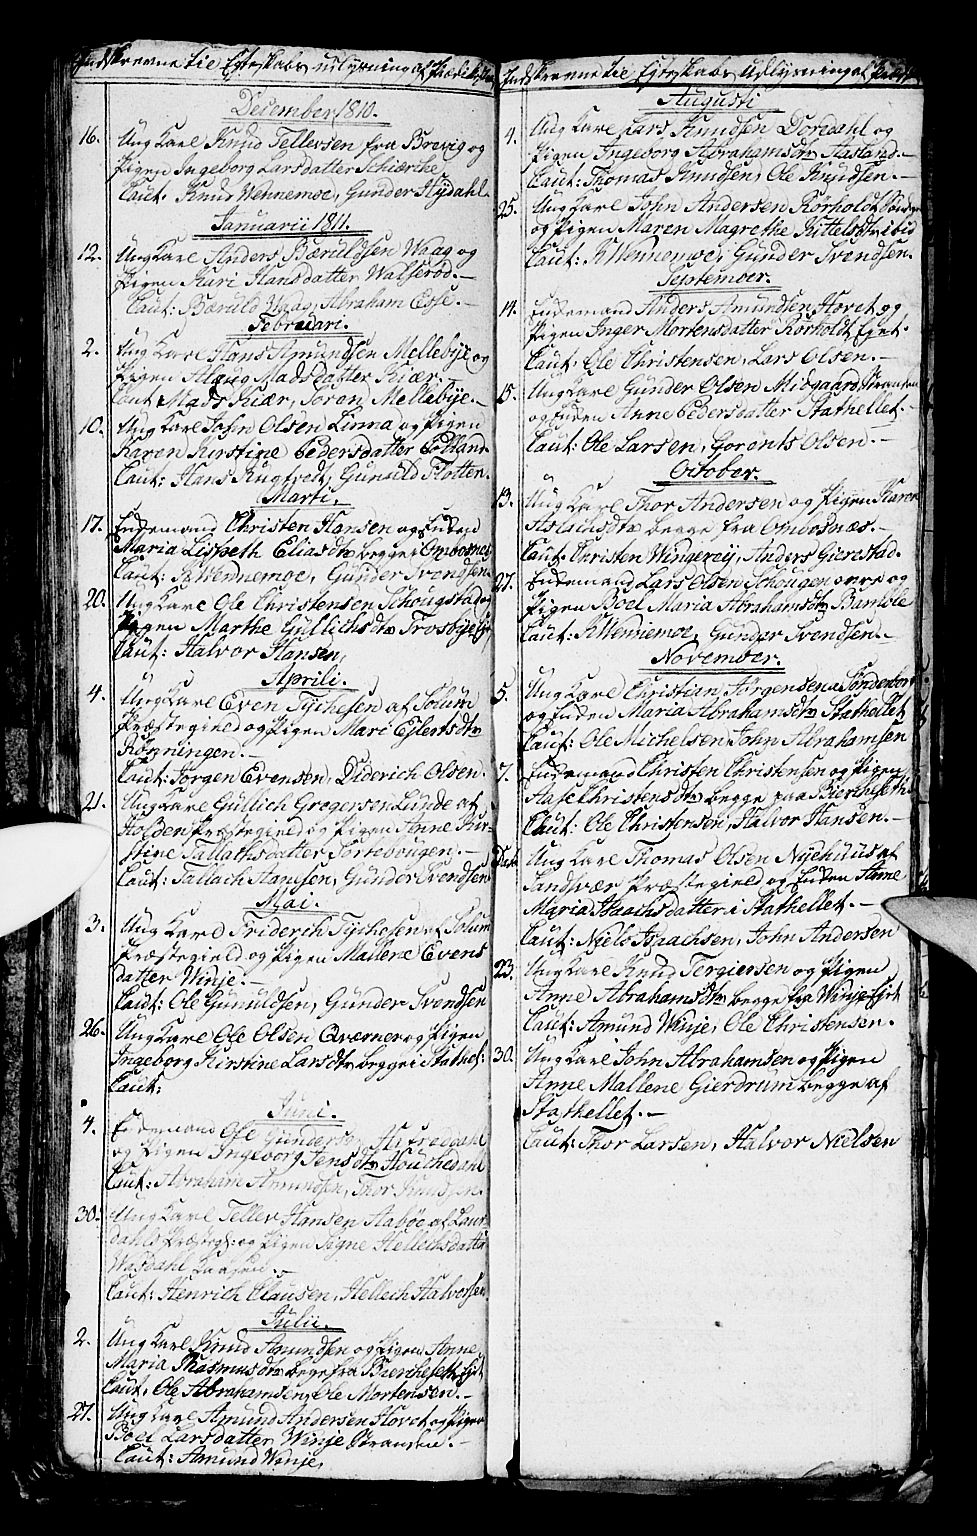 Indskrevne til Egteskabs udlysning af Prædikestolen
December 1810.
16. Ung Karl Knud Tellefsen fra Brevig og
Pigen Ingeborg Larsdatter Schierke
Caut. Knud Wennemoe, Gunder Rydahl
Januarii 1811.
12. Ung Karl Anders Bæruldsen Waag og
Pigen Kari Hansdatter Valserød.
Caut: Bæruld Vaag, Abraham Esse.
Februari.
2. Ung Karl Hans Amundsen Mellebye og
Pigen Alaug Madsdatter Kiær.
Caut: Mads Kiær, Soren Mellebye.
10. Ung Karl John Olsen Linna og Pigen
Karen Kirstine Pedersdatter
Caut: Hans Rugtvedt, Gunuld Flotten.
Marti,
17. Enkemand Christen Hansen og Enken
Maria Lisbeth Eliasdtr begge i Ombosnes
Caut: K Wennemoe, Gunder Svendsen
20. Ung Karl Ole Christensen Schougstad og
Pigen Marthe Gullichsdtr Trosbye
Caut: Halvor Hansen,
Aprili.
4. Ung Karl Even Tychesen af Solum
Præstegield og Pigen Mari Eylertsdtr
Rørrungen.
Caut: Jørgen Evensen, Diderich Olsen.
21. Ung Karl Gullich Gregersen Lunde af
Holden Præstegield og Pigen Anne Kir-
stine Tallachsdatter Tortebougen.
Caut: Tallach Hansen, Gunder Svendsen
Mai.
3. Ung Karl Friderich Tychesen af Solum
Præstegield og Pigen Mallene Evens
datter Winje.
Caut: Ole Gunuldsen, Gunder Svendsen
26. Ung Karl Ole Olsen Qværne og Pigen
Ingeborg Kirstine Larsdtr begge i Stathel:
Caut:
Juni.
4. Enkemand Ole Gundersen
og Pigen Ingeborg Jensdtr Houchedahl
Caut: Abraham Amundsen, Thor Knudsen.
30. Ung Karl Tellef Hansen Aabøe af Laur-
dahls Præsteg: og Pigen Signe Hellechsdatter
Wasdahl
Caut: Henrich Clausen, Hellech Halvorsen
Julii.
2. Ung Karl Knud Amundsen og Pigen Anne
Maria Rasmusdtr begge fra Bierchesethejet
Caut, Ole Abrahamsen, Ole Mortensen.
27. Ung Karl Amund Andersen Hovet og Pigen
Boel Larsdatter Winje Stranden.
Caut: Amund Winje,
Indskrevne til Egteskabs Udlysning af
Augusti
4. Ung Karl Lars Knudsen Dordahl og
Pigen Ingeborg Abrahamsdtr Aasland.
Caut: Thomas Knudsen, Ole Knudsen.
25. Ung Karl John Andersen Rørholdt
og Pigen Maren Magrethe Kittelsdtr ibid
Caut: K Wennemoe, Gunder Svendsen.
September.
14. Enkemand Anders Amundsen Hovet og
Pigen Inger Mortensdatter Rørholdt Ejet.
Caut: Ole Christensen, Lars Olsen.
15. Ung Karl Gunder Olsen Midgaard Stranden
og Enken Anne Pedersdatter Stathellet.
Caut: Ole Larsen, Goronts Olsen.
October.
13. Ung Karl Thor Andersen og Pigen Karen
Aslachsdtr begge fra Ombosnæs.
Caut: Christen Wingerej, Anders Gierestad.
27. Enkemand Lars Olsen Schougen øvre og
Pigen Boel Maria Abrahamsdtr Bamble
Caut: K Wennemoe, Gunder Svendsen.
November.
5. Ung Karl Christian Jørgensen Sønderborg
og Enken Maria Abrahamsdtr Stathellet
Caut: Ole Michelsen, John Abrahamsen
7. Enkemand Christen Christensen og Pigen
Aase Christensdtr begge paa Biercheseth
Caut: Ole Christensen, Halvor Hansen.
Dato Ung Karl Thomas Olsen Nyehuus af
Sandsvær Præstegield og Enken Anne
Maria Isaachsdatter i Stathellet.
Caut: Niels Isaachsen, John Andersen
23. Ung Karl Knud Tergiersen og Pigen
Anne Abrahamsdtr begge fra Winje Ejet
Caut: Amund Winje, Ole Christensen.
30. Ung Karl John Abrahamsen og Pigen
Anne Mallene Gierdrum begge af
Stathellet.
Caut: Thor Larsen, Halvor Nielsen